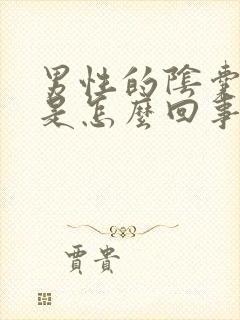 男性的陰囊
是怎麼回事
賈貴